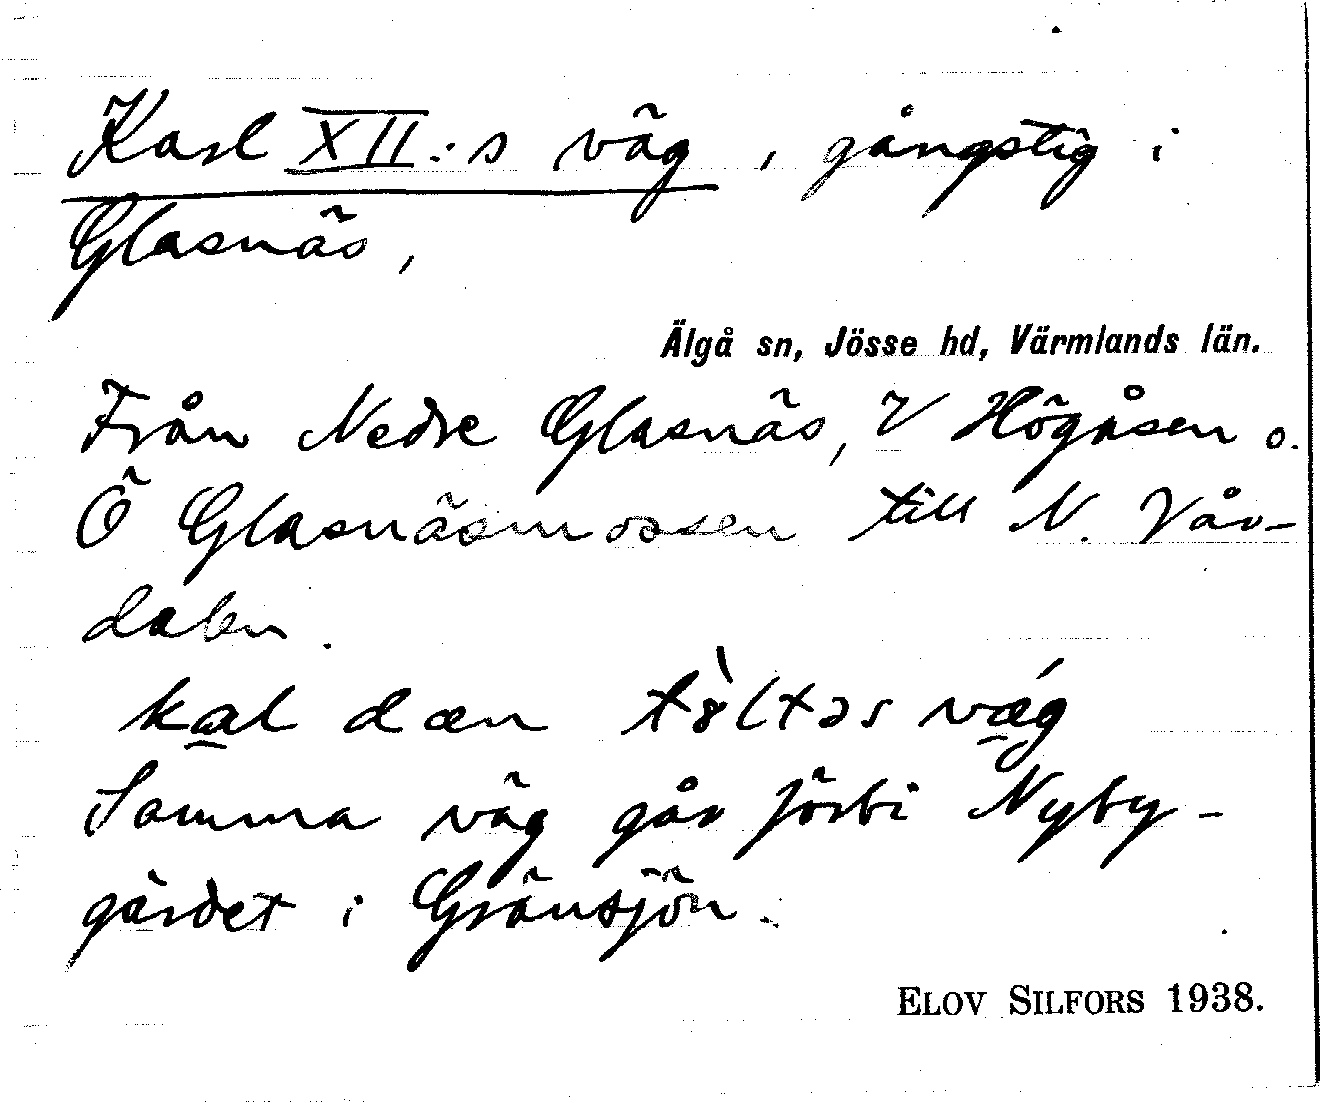 Karl XII:s väg, gångstig i
Glasnäs,
Älgå sn, Jösse hd, Värmlands län.
Från Nedre Glasnäs, V Högåsen o.
Ö Glasnäsmossen till N. Vår-
dalen.
kal dæn tȣ̀ltəs vǽg
Samma väg går förbi Nyby-
gärdet i Gränsjön.
ELOV SILFORS 1938.